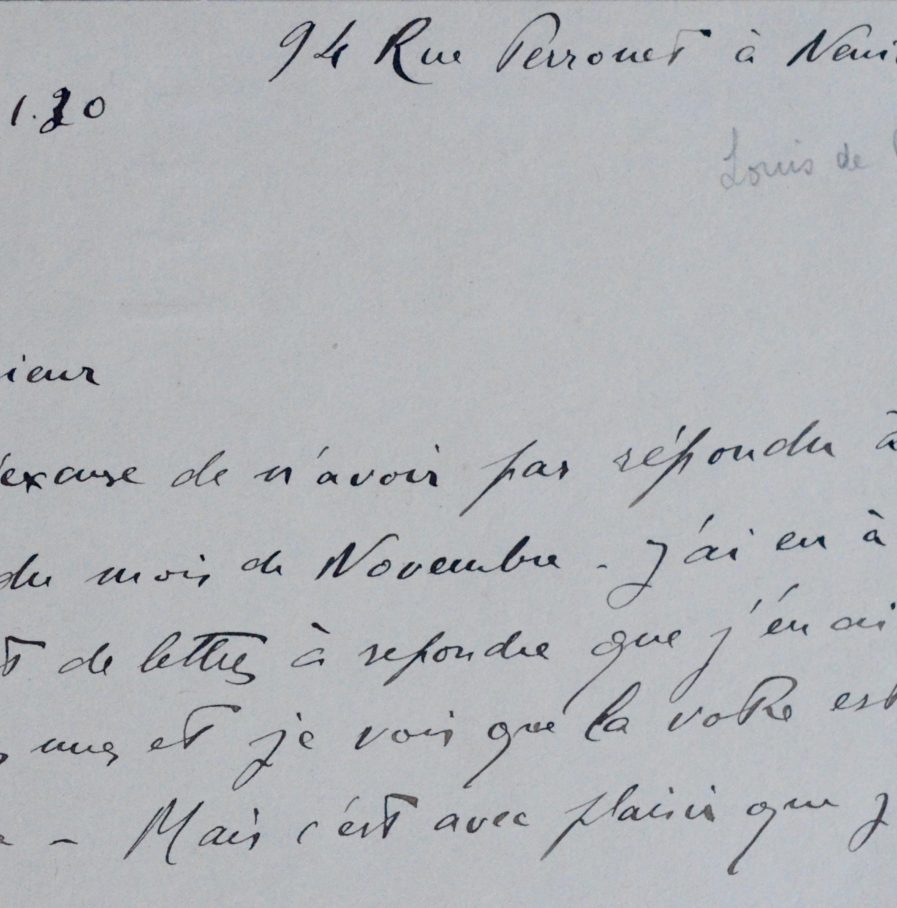 94 Rue Perronet à Neui
1.30
Louis de
ieur
'excuse de n'avoir pas répondu à
du mois de Novembre - J'ai eu à
t de lettres à repondre que j'en ai
unes et je vois que la votre est
- Mais c'est avec plaisir que j